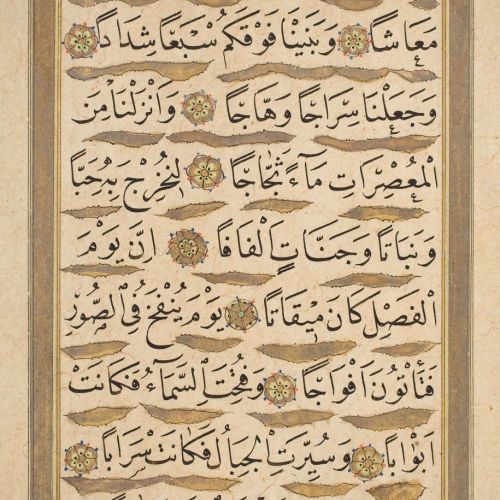 مَعَاشًا وَبَنَيْنَا فَوْقَكُمْ سَبْعًا شِدَادًا
وَجَعَلْنَا سِرَاجًا وَهَّاجًا وَاَنْزَلْنَا مِنَ
الْمُعْصِرَاتِ مَآءً ثَجَّاجًا لِنُخْرِجَ بِهِ حَبًّا
وَنَبَاتًا وَجَنَّاتٍ اَلْفَافًا اِنَّ يَوْمَ
الْفَصْلِ كَانَ مِيقَاتًا يَوْمَ يُنْفَخُ فِي الصُّورِ
فَتَأْتُونَ اَفْوَاجًا وَفُتِحَتِ السَّمَآءُ فَكَانَتْ
اَبْوَابًا وَسُيِّرَتِ الْجِبَالُ فَكَانَتْ سَرَابًا